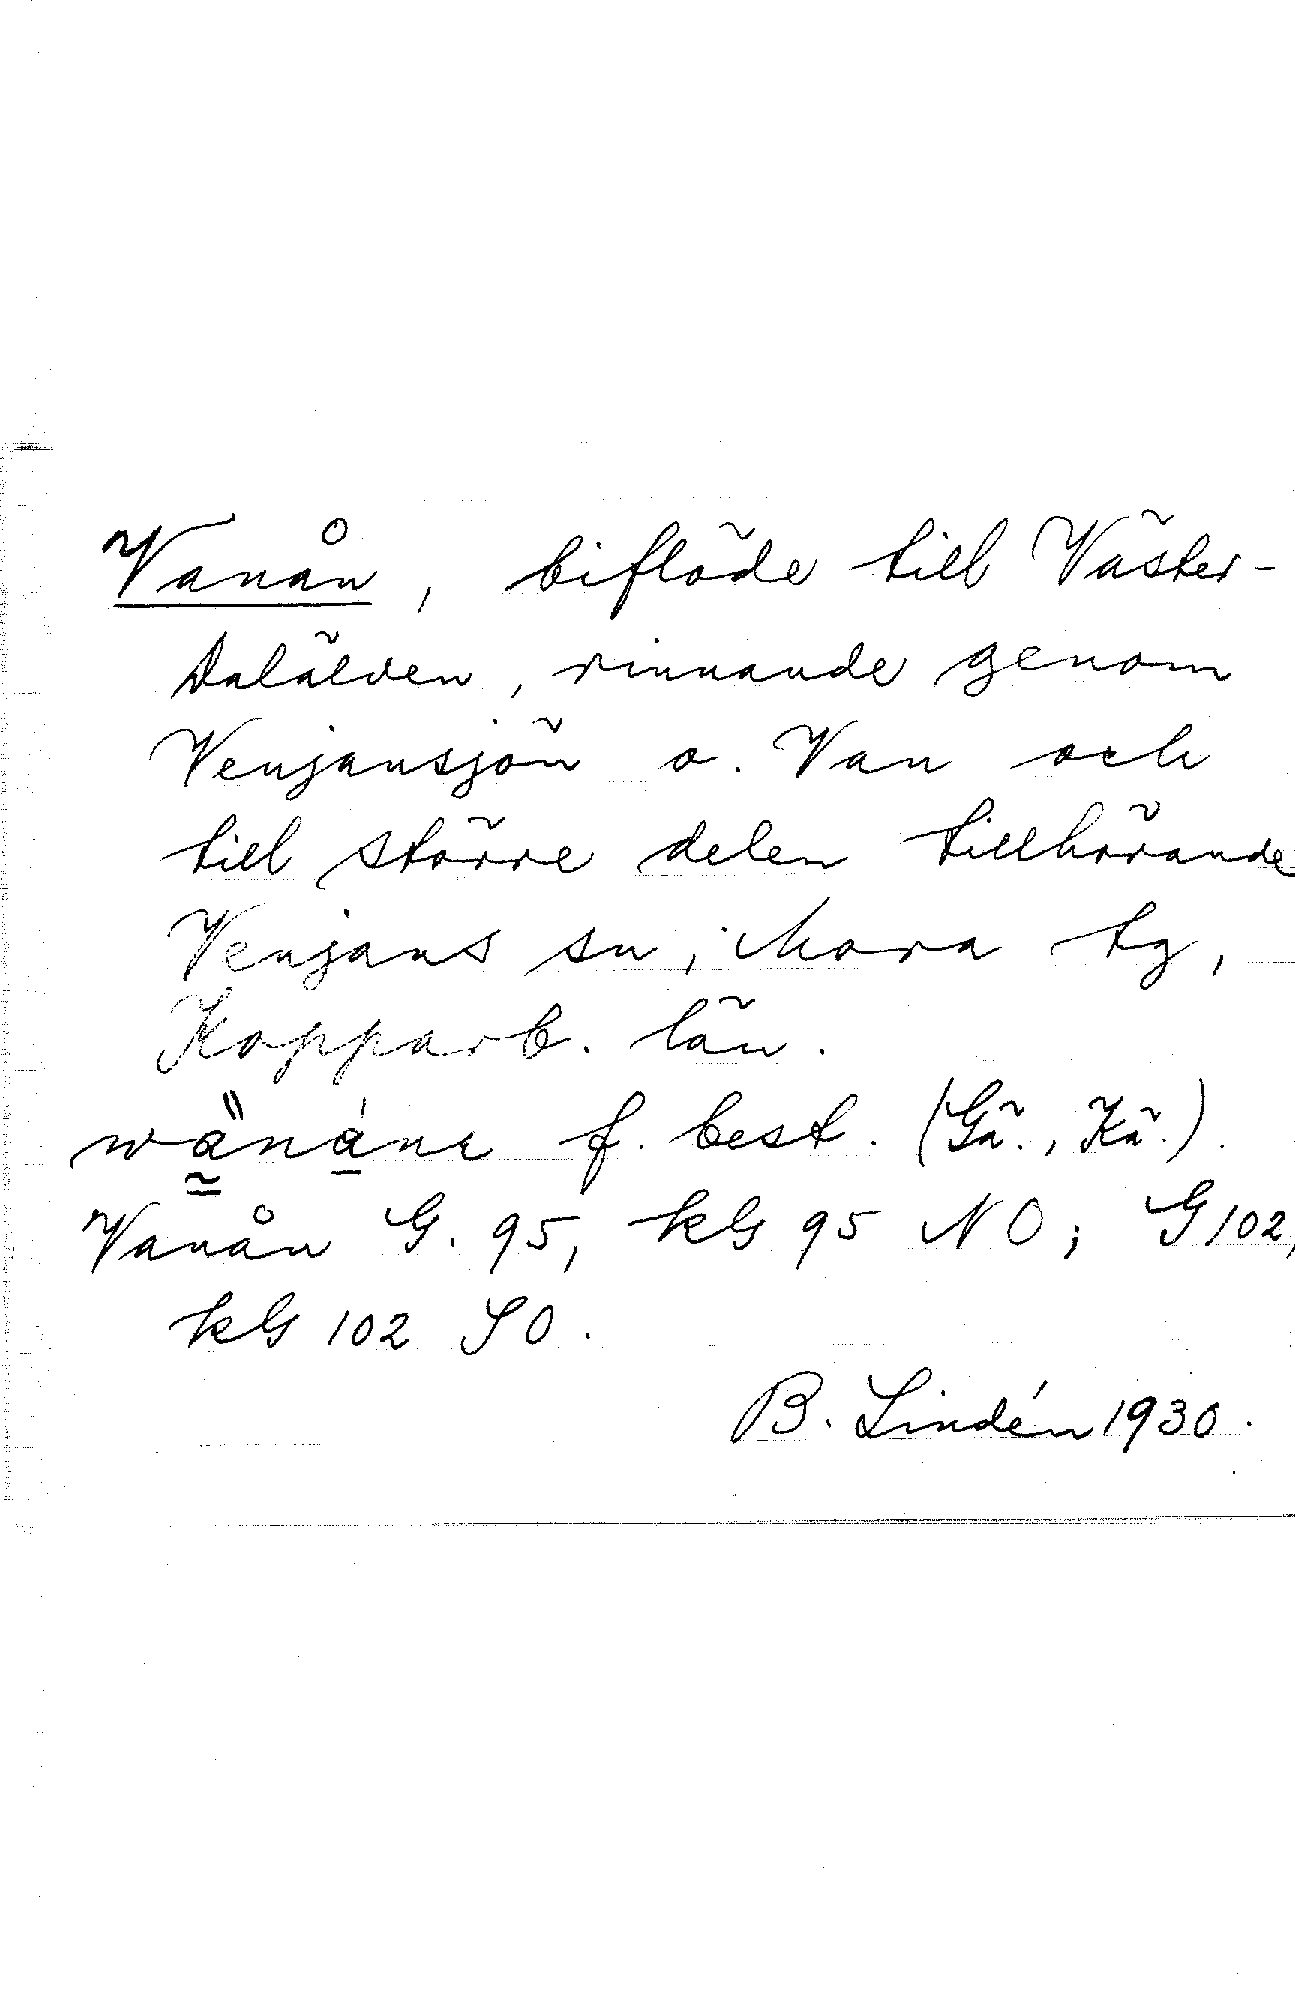 Vanån, biflöde till Väster-
Dalälven, rinnande genom
Venjansjön o. Van och
till större delen tillhörande
Venjans sn, Mora tg,
Kopparb. län.
f. best. (Gä., Kä.).
Vanån G. 95, kG 95 NO; G 102,
kG 102 SO.
B. Lindén 1930.